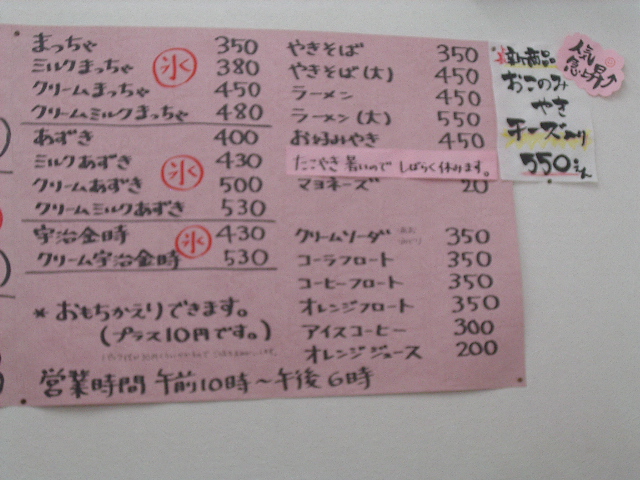 まっちゃ 350
ミルクまっちゃ 380
クリームまっちゃ 450
クリームミルクまっちゃ 480
氷
あずき 400
ミルクあずき 430
クリームあずき 500
クリームミルクあずき 530
氷
宇治金時 430
クリーム宇治金時 530
氷
* おもちかえりできます。
(プラス10円です。)
営業時間 午前10時〜午後6時
やきそば 350
やきそば(大) 450
ラーメン 450
ラーメン(大) 550
お好みやき 450
たこやき 暑いので しばらく休みます。
マヨネーズ 20
クリームソーダ 350
コーラフロート 350
コーヒーフロート 350
オレンジフロート 350
アイスコーヒー 300
オレンジジュース 200
新商品
おこのみ
やき
チーズ入り
550えん
人気
急上昇↑